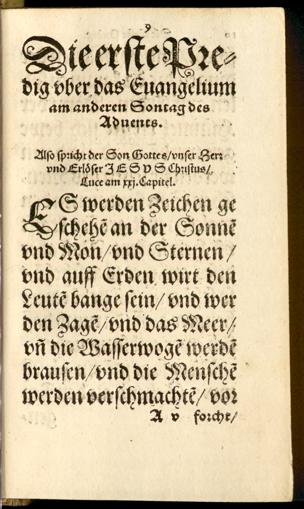 9
Die erste Pre-
dig vber das Euangelium
am anderen Sontag des
Aduents.
Also spricht der Son Gottes/vnser Herr
vnd Erlöser JESVS Christus/
Luce am xxj. Capitel.
ES werden Zeichen ge
schehẽ an der Sonnẽ
vnd Mon/vnd Sternen/
vnd auff Erden wirt den
Leutẽ bange sein/vnd wer
den Zagẽ/vnd das Meer/
vñ die Wasserwogẽ werdẽ
brausen/vnd die Menschẽ
werden verschmachtẽ/vor
A v forcht/